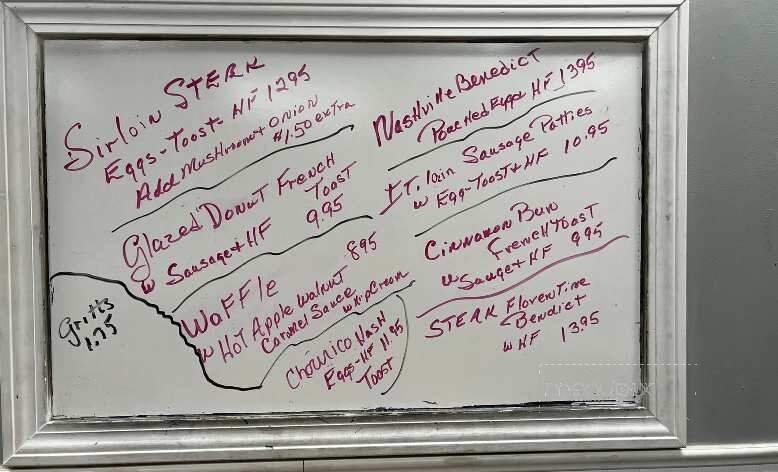 Sirloin STEAK
Eggs-Toast-HF 1295
Add Mushroom + Onion
$1.50 extra
Glazed Donut French
Toast
w Sausage + HF 9.95
Waffle 895
w Hot Apple Walnut
Caramel Sauce
w whip Cream
Gritts
1.75
Chourico Hash
Eggs-HF 11.95
Toast
Nashville Benedict
Poached Eggs HF 1395
IT. lain Sausage Patties
w Egg-Toast + HF 10.95
Cinnamon Bun
French Toast
w Sausget HF 995
STEAK Florentine
Benedict
w HF 13.95